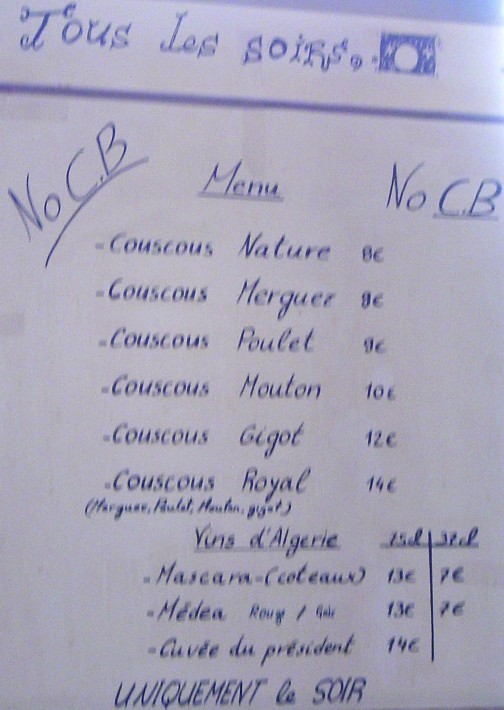 Tous les soirs.
No C.B
Menu
No C.B
- Couscous Nature 8€
- Couscous Merguez 9€
- Couscous Poulet 9€
- Couscous Mouton 10€
- Couscous Gigot 12€
- Couscous Royal 14€
(Merguez, Poulet, Mouton, gigot)
Vins d'Algerie 75cl 37cl
- Mascara - (coteaux) 13€ 7€
- Médea Rouge / 13€ 7€
- Cuvée du président 14€
UNIQUEMENT le SOIR